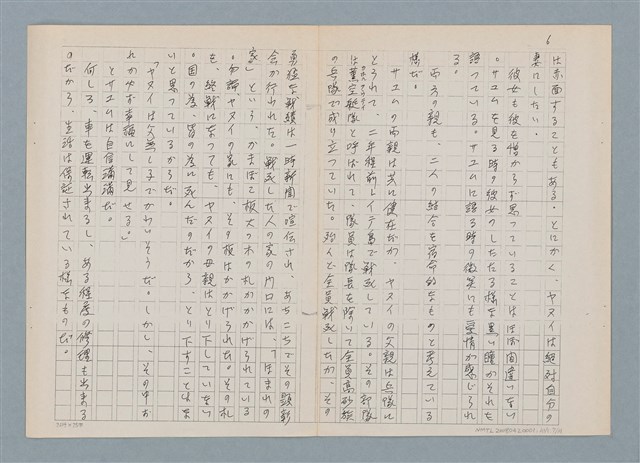 6
は赤面することもある。とにかく、ヤスイは絶対自分の
妻にしたい。
彼女も彼を憎からず思っていることはほぼ間違いない
。サユムを見る時の彼女のしたたる様な黒い瞳がそれを
語っている。サユムに語る時の微笑にも愛情が感じられ
る。
両方の親も、二人の結合を宿命的なものと考えている
様だ。
サユムの両親は共に健在だが、ヤスイの父親は兵隊に
とられて、二年程前レイテ島で戦死している。その部隊
は薫空挺隊と呼ばれて、隊員は隊長を除いて全員高砂族
の兵隊で成り立っていた。殆んど全員戦死したが、その
勇猛な戦績は一時新聞で宣伝され、あちこちでその顕彰
会が行われた。戦死した人の家の門口には、「ほまれの
家」という、かまぼこ板大の木の札がかかげられている
。勿論ヤスイの家にも、その板はかかげられた。その札
を、終戦になっても、ヤスイの母親はとり下していない
。国の為、皆の為に死んだのだから、とり下すことはな
いと思っているからだ。
「ヤスイは父無し子でかわいそうだ。しかし、その中お
れがやす幸福にして見せる。」
とサユムは自信満満だ。
何しろ、車も運転出来るし、ある程度の修理も出来る
のだから、生活は保証されている様なものだ。